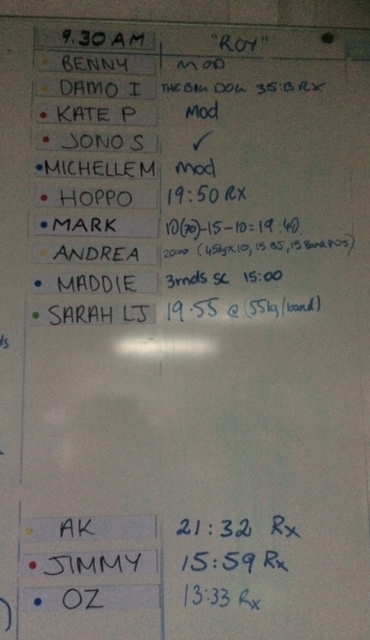 9.30 AM "ROY"
BENNY MOD
DAMO I THE BIG DOG 35:13 RX
KATE P Mod
JONO S ✓
MICHELLE M Mod
HOPPO 19:50 RX
MARK 10(70)-15-10 = 19:40
ANDREA (45kgx10, 15 BJ, 15 Band PUs)
MADDIE 3rnds SC 15:00
SARAH LJ 19.55 @ (55kg/band)
AK 21:32 Rx
JIMMY 15:59 Rx
OZ 13:33 Rx